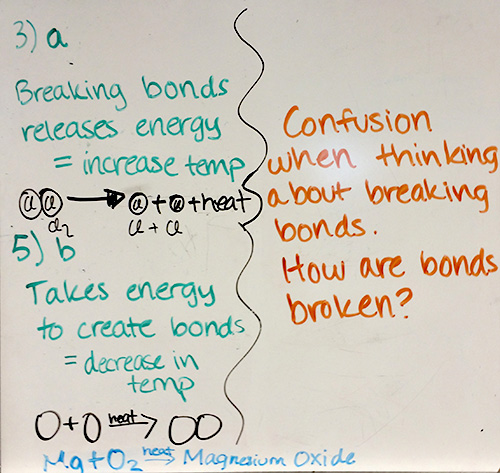 3) a
Breaking bonds
releases energy
= increase temp
Cl Cl → Cl + Cl + heat
Cl2 Cl + Cl
5) b
Takes energy
to create bonds
= decrease in
temp
O + O heat → OO
Mg + O2 heat → Magnesium Oxide
Confusion
when thinking
about breaking
bonds.
How are bonds
broken?